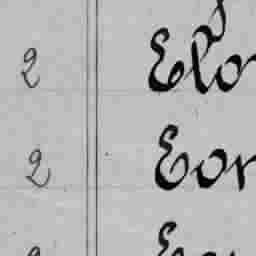 2 Elo
2 Eor
2